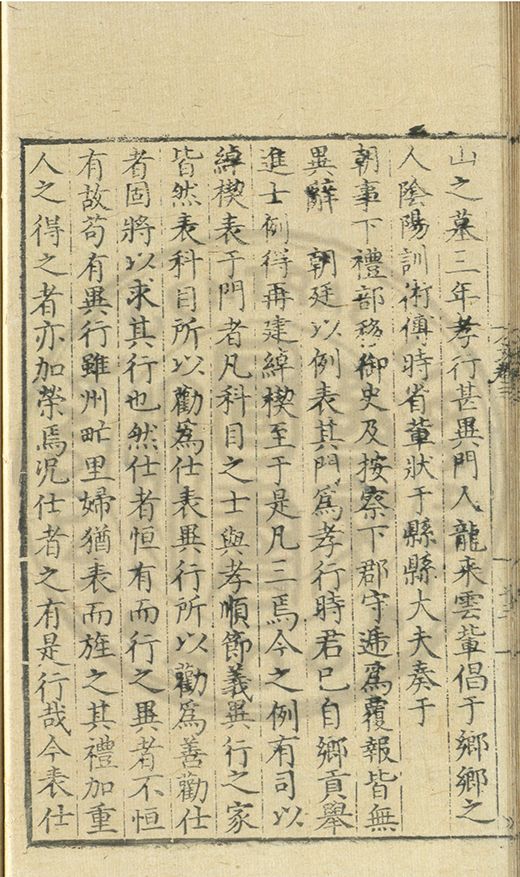 山之墓三年孝行甚異門人龍來雲軰倡于鄉鄉之
人陰陽訓術傅時省軰狀于縣縣大夫奏于
朝事下禮部移御史及按察下郡守逓爲覆報皆無
異辭　朝廷以例表其門爲孝行時君已自鄉貢舉
進士例得再建綽楔至于是凡三焉今之例有司以
綽楔表于門者凡科目之士與孝順節義異行之家
皆然表科目所以勸爲仕表異行所以勸爲善勸仕
者固將以求其行也然仕者恒有而行之異者不恒
有故苟有異行雖州甿里婦猶表而旌之其禮加重
人之得之者亦加榮焉况仕者之有是行哉今表仕